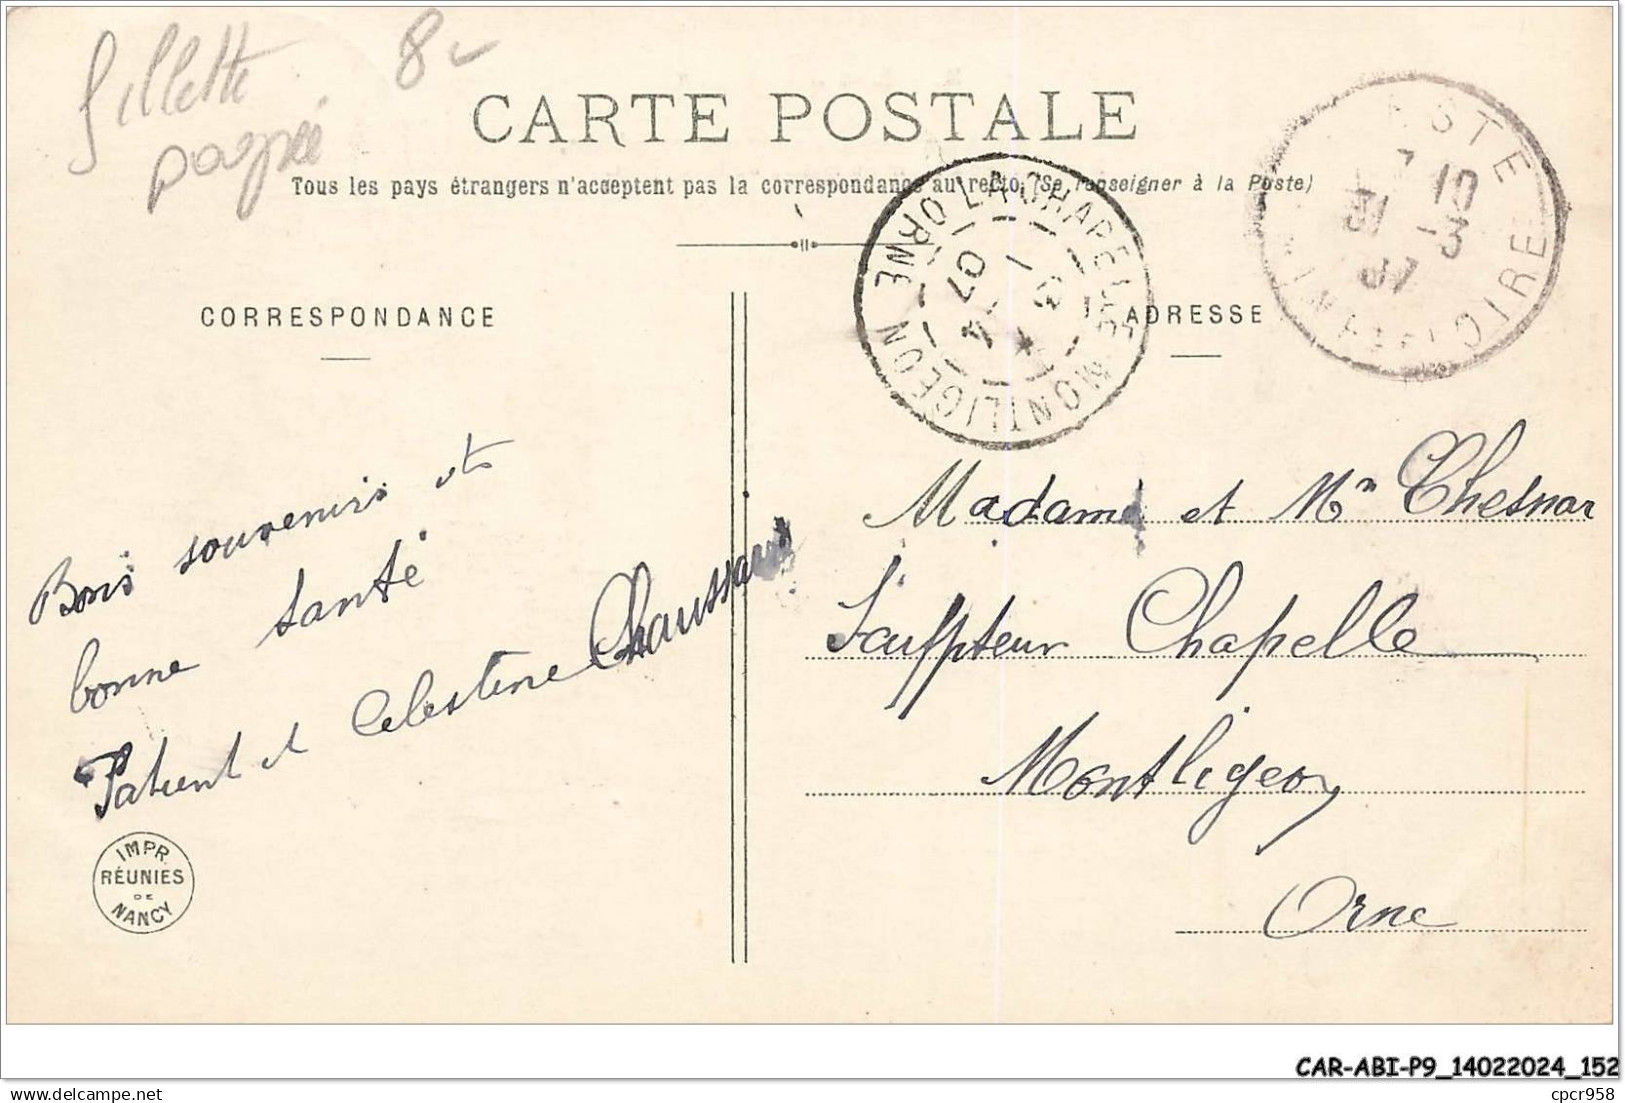 8
CARTE POSTALE
Tous les pays étrangers n'acceptent pas la correspondance au recto. (Se renseigner à la Poste)
LA CHAPELLE-MONTLIGEON ORNE
07
7 10
31 -3
07
INF-LOIRE
CORRESPONDANCE
ADRESSE
Bons souvenirs et
bonne santé
Patient et Celestine Chaussard
Madame et Mr Chesnar
Sculpteur Chapelle
Montligeon
Orne
IMPR.
RÉUNIES
DE
NANCY
CAR-ABI-P9_14022024_152
cpcr958